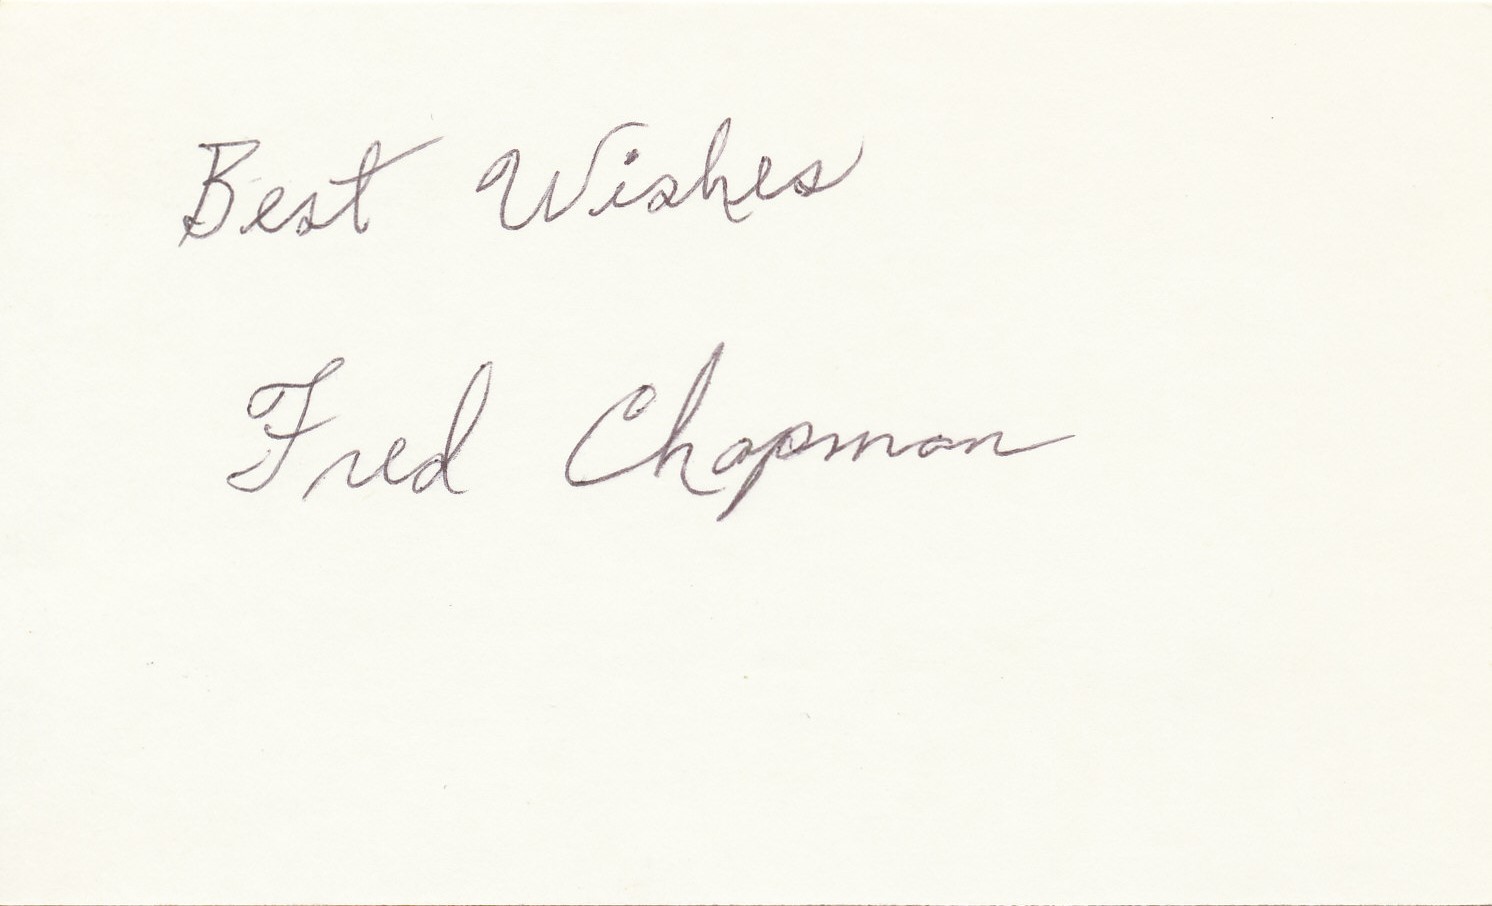 Best Wishes
Fred Chapman